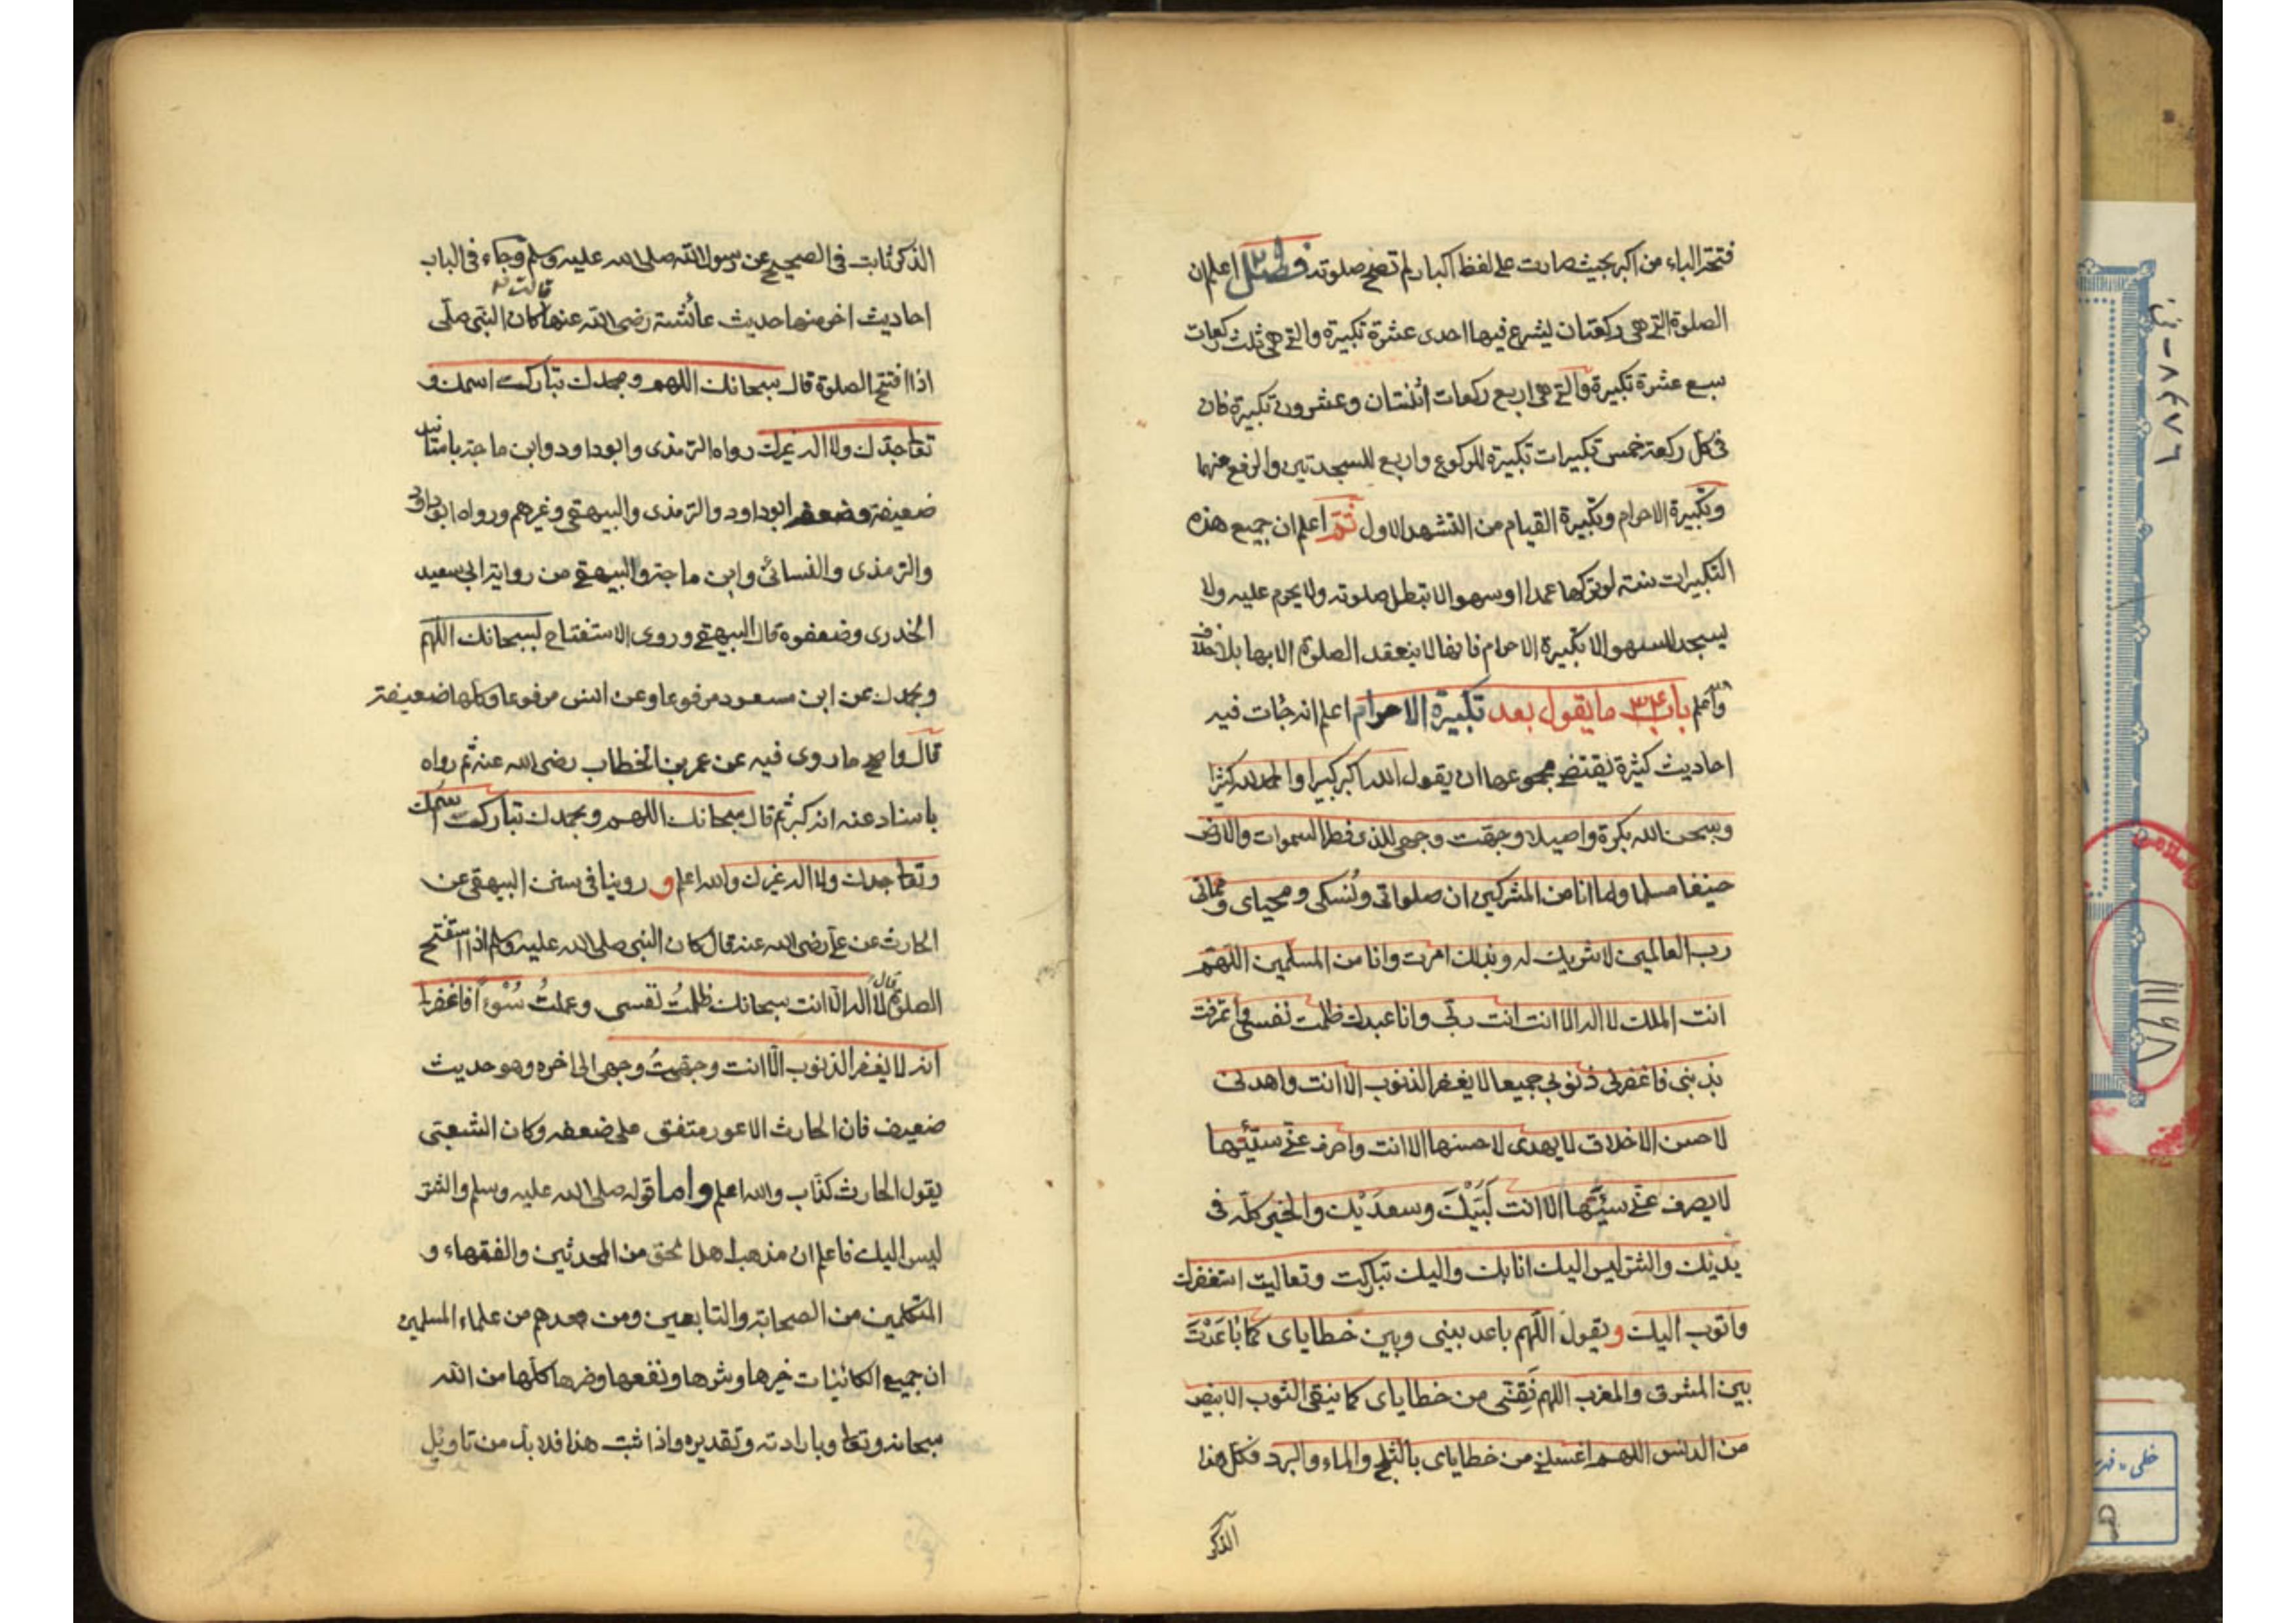 فتحة الباء من اكبر بحيث صارت على لفظ اكبار لم تصح صلوته فصل اعلم ان
الصلوة التي هى ركعتان يشرع فيها احدى عشرة تكبيرة والتي هى ثلث ركعات
سبع عشرة تكبيرة والتي هى اربع ركعات اثنتان وعشرون تكبيرة فان
فى كل ركعة خمس تكبيرات تكبيرة للركوع واربع للسجدتين والرفع منهما
وتكبيرة الاحرام وتكبيرة القيام من التشهد الاول ثم اعلم ان جميع هذه
التكبيرات سنة لو تركها عمدا او سهوا لا تبطل صلوته ولا يحرم عليه ولا
يسجد للسهو الا تكبيرة الاحرام فانها لا ينعقد الصلوة الا بها بلا خلاف
واعلم باب ما يقول بعد تكبيرة الاحرام اعلم انه جات فيه
احاديث كثيرة يقتضى مجموعها ان يقول الله اكبر كبيرا والحمد لله كثيرا
وسبحن الله بكرة واصيلا وجهت وجهى للذى فطر السموات والارض
حنيفا مسلما وما انا من المشركين ان صلواتى ونُسكى ومحياى ومماتى
رب العالمين لا شريك له وبذلك امرت وانا من المسلمين اللهم
انت الملك لا اله الا انت انت ربى وانا عبدك ظلمت نفسى واعترفت
بذنبى فاغفرلى ذنوبى جميعا لا يغفر الذنوب الا انت واهدنى
لاحسن الاخلاق لا يهدى لاحسنها الا انت واصرف عنى سيئها
لا يصرف عنى سيئها الا انت لَبَّيْكَ وسعدَيْك والخير كله فى
يديك والشر ليس اليك انا بك واليك تباركت وتعاليت استغفرك
واتوب اليك ويقول اللهم باعد بينى وبين خطاياى كما بَاعَدْتَ
بين المشرق والمغرب اللهم نَقِّنى من خطاياى كما ينقى الثوب الابيض
من الدنس اللهم اغسلنى من خطاياى بالثلج والماء والبرد فكل هذا
الذكر
الذكر ثابت فى الصحيح عن رسول الله صلى الله عليه وسلم وجاء فى الباب
احاديث اخر منها حديث عائشة رضى الله عنها قالت كان النبى صلى
اذا افتتح الصلوة قال سبحانك اللهم وبحمدك تبارك اسمك و
تعا جدك ولا اله غيرك رواه الترمذى وابو داود وابن ماجة باسانيد
ضعيفة وضعفه ابو داود والترمذى والبيهقى وغيرهم ورواه ابو داود
والترمذى والنسائى وابن ماجة والبيهقى من رواية ابى سعيد
الخدرى وضعفوه قال البيهقى وروى الاستفتاح بسبحانك اللهم
وبحمدك عن ابن مسعود مرفوعا وعن انس مرفوعا وكلها ضعيفة
قال واصح ما روى فيه عن عمر بن الخطاب رضى الله عنه ثم رواه
باسناد عنه انه كبر ثم قال سبحانك اللهم وبحمدك تبارك اسمك
وتعا جدك ولا اله غيرك والله اعلم و روينا فى سنن البيهقى عن
الحارث عن على رضى الله عنه قال كان النبى صلى الله عليه وسلم اذا استفتح
الصلوة قال لا اله الا انت سبحانك ظلمتُ نفسى وعملتُ سُوْءًا فاغفرلى
انه لا يغفر الذنوب الا انت وجهتُ وجهى الى اخره وهو حديث
ضعيف فان الحارث الاعور متفق على ضعفه وكان الشعبى
يقول الحارث كذاب والله اعلم واما قوله صلى الله عليه وسلم والشر
ليس اليك فاعلم ان مذهب اهل الحق من المحدثين والفقهاء و
المتكلمين من الصحابة والتابعين ومن بعدهم من علماء المسلمين
ان جميع الكائنات خيرها وشرها ونفعها وضرها كلها من الله
سبحانه وتعا وبارادته وتقديره واذا ثبت هذا فلا بد من تاويل